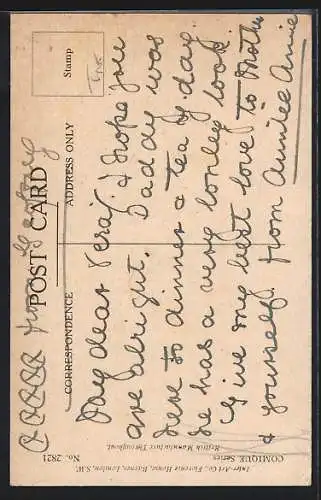 xxxxx from Georgey
POST CARD
CORRESPONDENCE
ADDRESS ONLY
Stamp
My dear Vera, I hope you
are alright. Daddy was
here to dinner & tea to day.
he has a very lonley look
Give my best love to Mother
& yourself, from Auntie Annie
No. 2821
COMIQUE Series
Inter-Art Co., Florence House, Barnes, London, S.W.
British Manufacture Throughout.